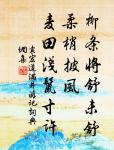 柳条将舒未舒
柔梢披风
麦田浅鬣寸许
袁宏道满井游记词典
网集